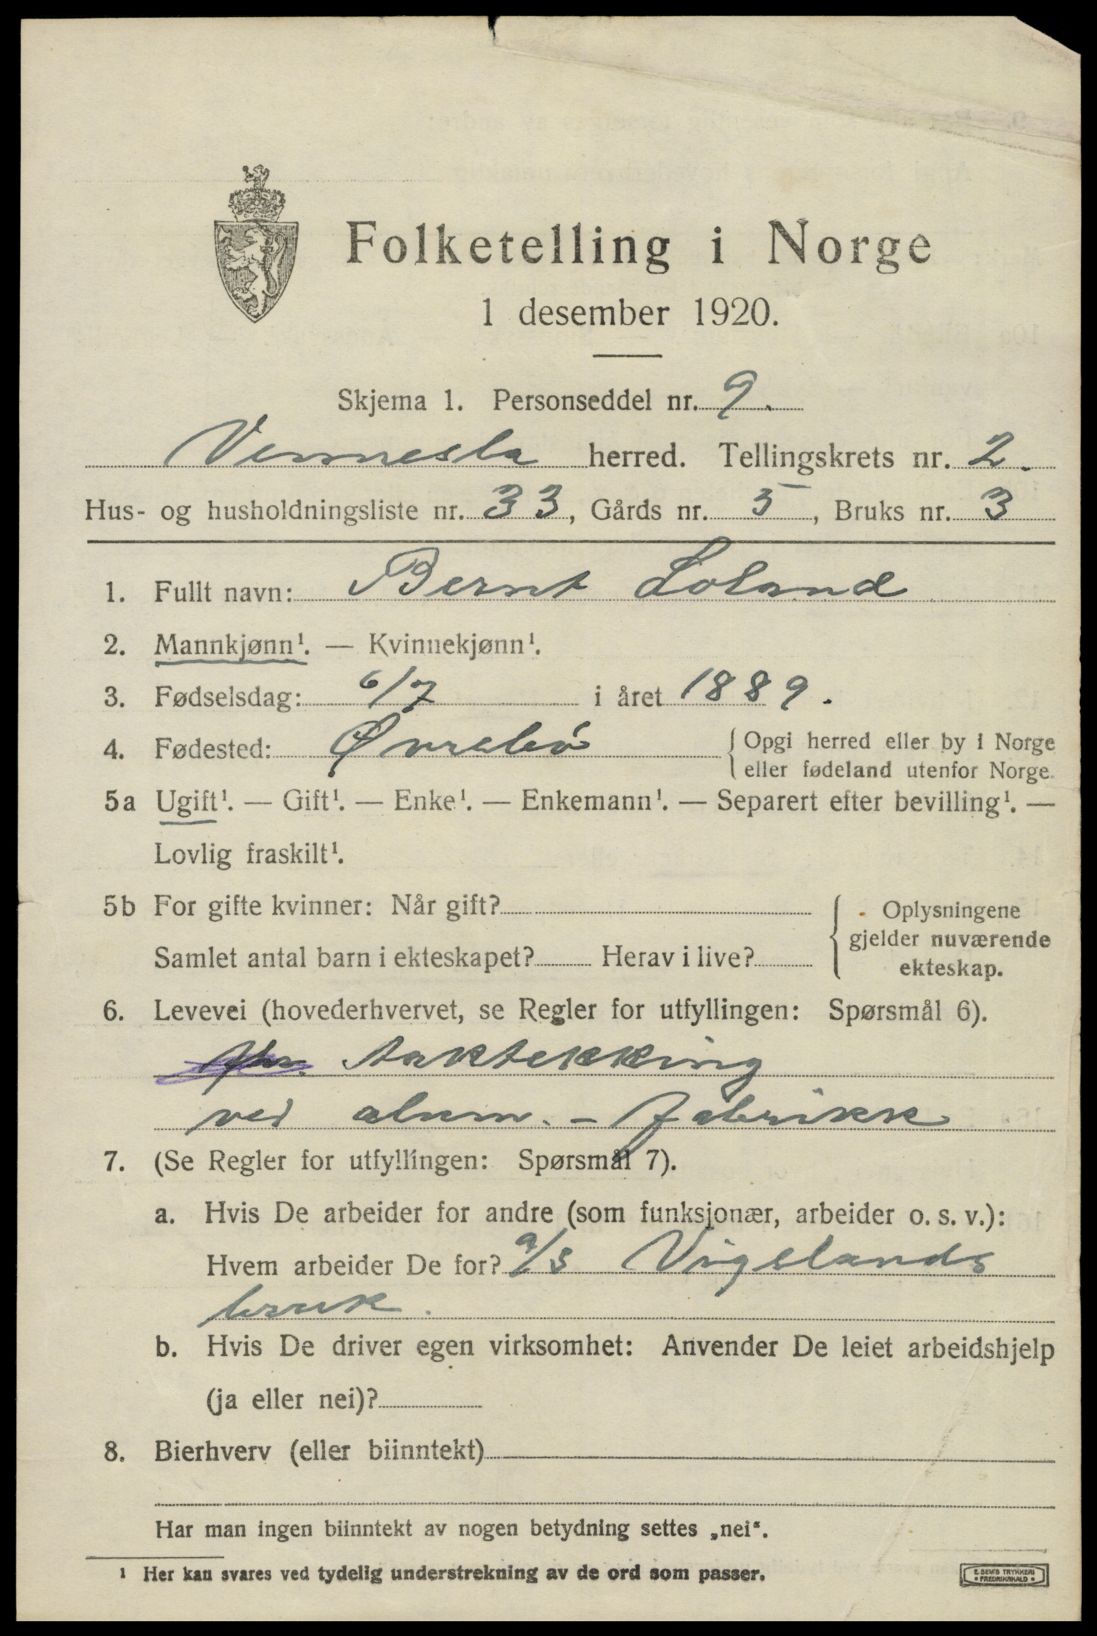 Folketelling i Norge
1 desember 1920.
Skjema 1. Personseddel nr. 9.
Vennesla herred. Tellingskrets nr. 2.
Hus- og husholdningsliste nr. 33, Gårds nr. 5, Bruks nr. 3
1. Fullt navn: Bernt Loland
2. Mannkjønn¹. — Kvinnekjønn¹.
3. Fødselsdag: 6/7 i året 1889.
4. Fødested: Øvrebø { Opgi herred eller by i Norge
eller fødeland utenfor Norge.
5a Ugift¹. — Gift¹. — Enke¹. — Enkemann¹. — Separert efter bevilling¹. —
Lovlig fraskilt¹.
5b For gifte kvinner: Når gift?
Samlet antal barn i ekteskapet? Herav i live?
{ Oplysningene
gjelder nuværende
ekteskap.
6. Levevei (hovederhvervet, se Regler for utfyllingen: Spørsmål 6).
taktekking
ved alum. - fabrikk
7. (Se Regler for utfyllingen: Spørsmål 7).
a. Hvis De arbeider for andre (som funksjonær, arbeider o. s. v.):
Hvem arbeider De for? a/s Vigelands
bruk.
b. Hvis De driver egen virksomhet: Anvender De leiet arbeidshjelp
(ja eller nei)?
8. Bierhverv (eller biinntekt)
Har man ingen biinntekt av nogen betydning settes „nei“.
¹ Her kan svares ved tydelig understrekning av de ord som passer.
E. SEMS TRYKKERI
• FREDRIKSHALD •